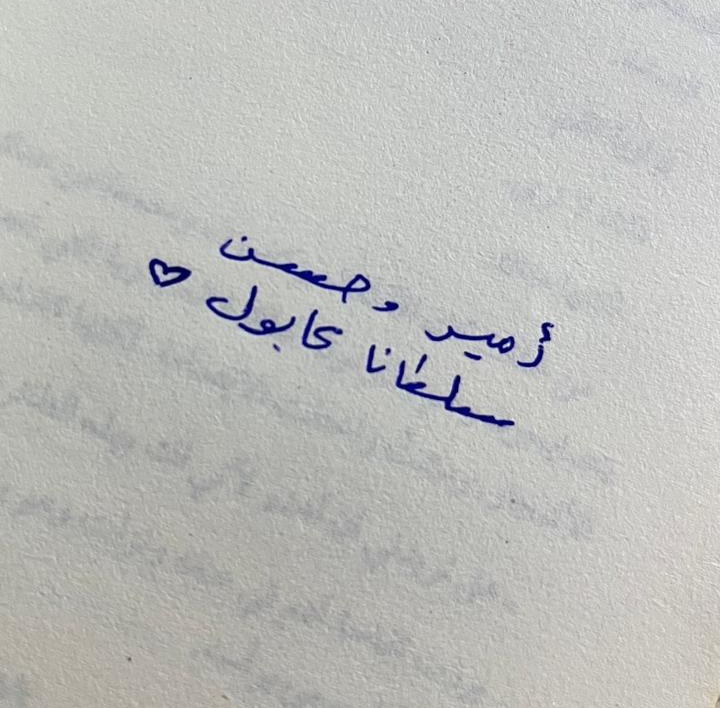 أمير وحسن
سلطانا كابول ♡